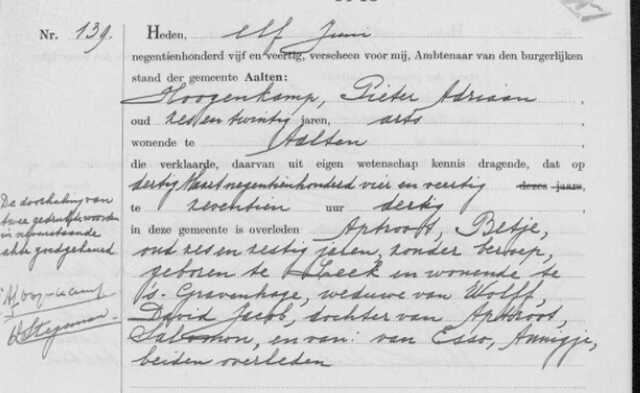 Nr. 139.
Heden, elf Juni
negentienhonderd vijf en veertig, verscheen voor mij, Ambtenaar van den burgerlijken
stand der gemeente Aalten:
Hoogenkamp, Pieter Adriaan,
oud zes en twintig jaren, arts
wonende te Aalten
die verklaarde, daarvan uit eigen wetenschap kennis dragende, dat op
dertig Maart negentienhonderd vier en veertig dezes jaars,
te zeventien uur dertig
in deze gemeente is overleden Aptroot, Betje,
oud zes en zestig jaren, zonder beroep,
geboren te Leek en wonende te
's-Gravenhage, weduwe van Wolff,
David Jacob, dochter van Aptroot,
Salomon, en van: van Esso, Annigje,
beiden overleden
De doorhaling van
twee gedrukte woorden
in nevenstaande
akte goedgekeurd